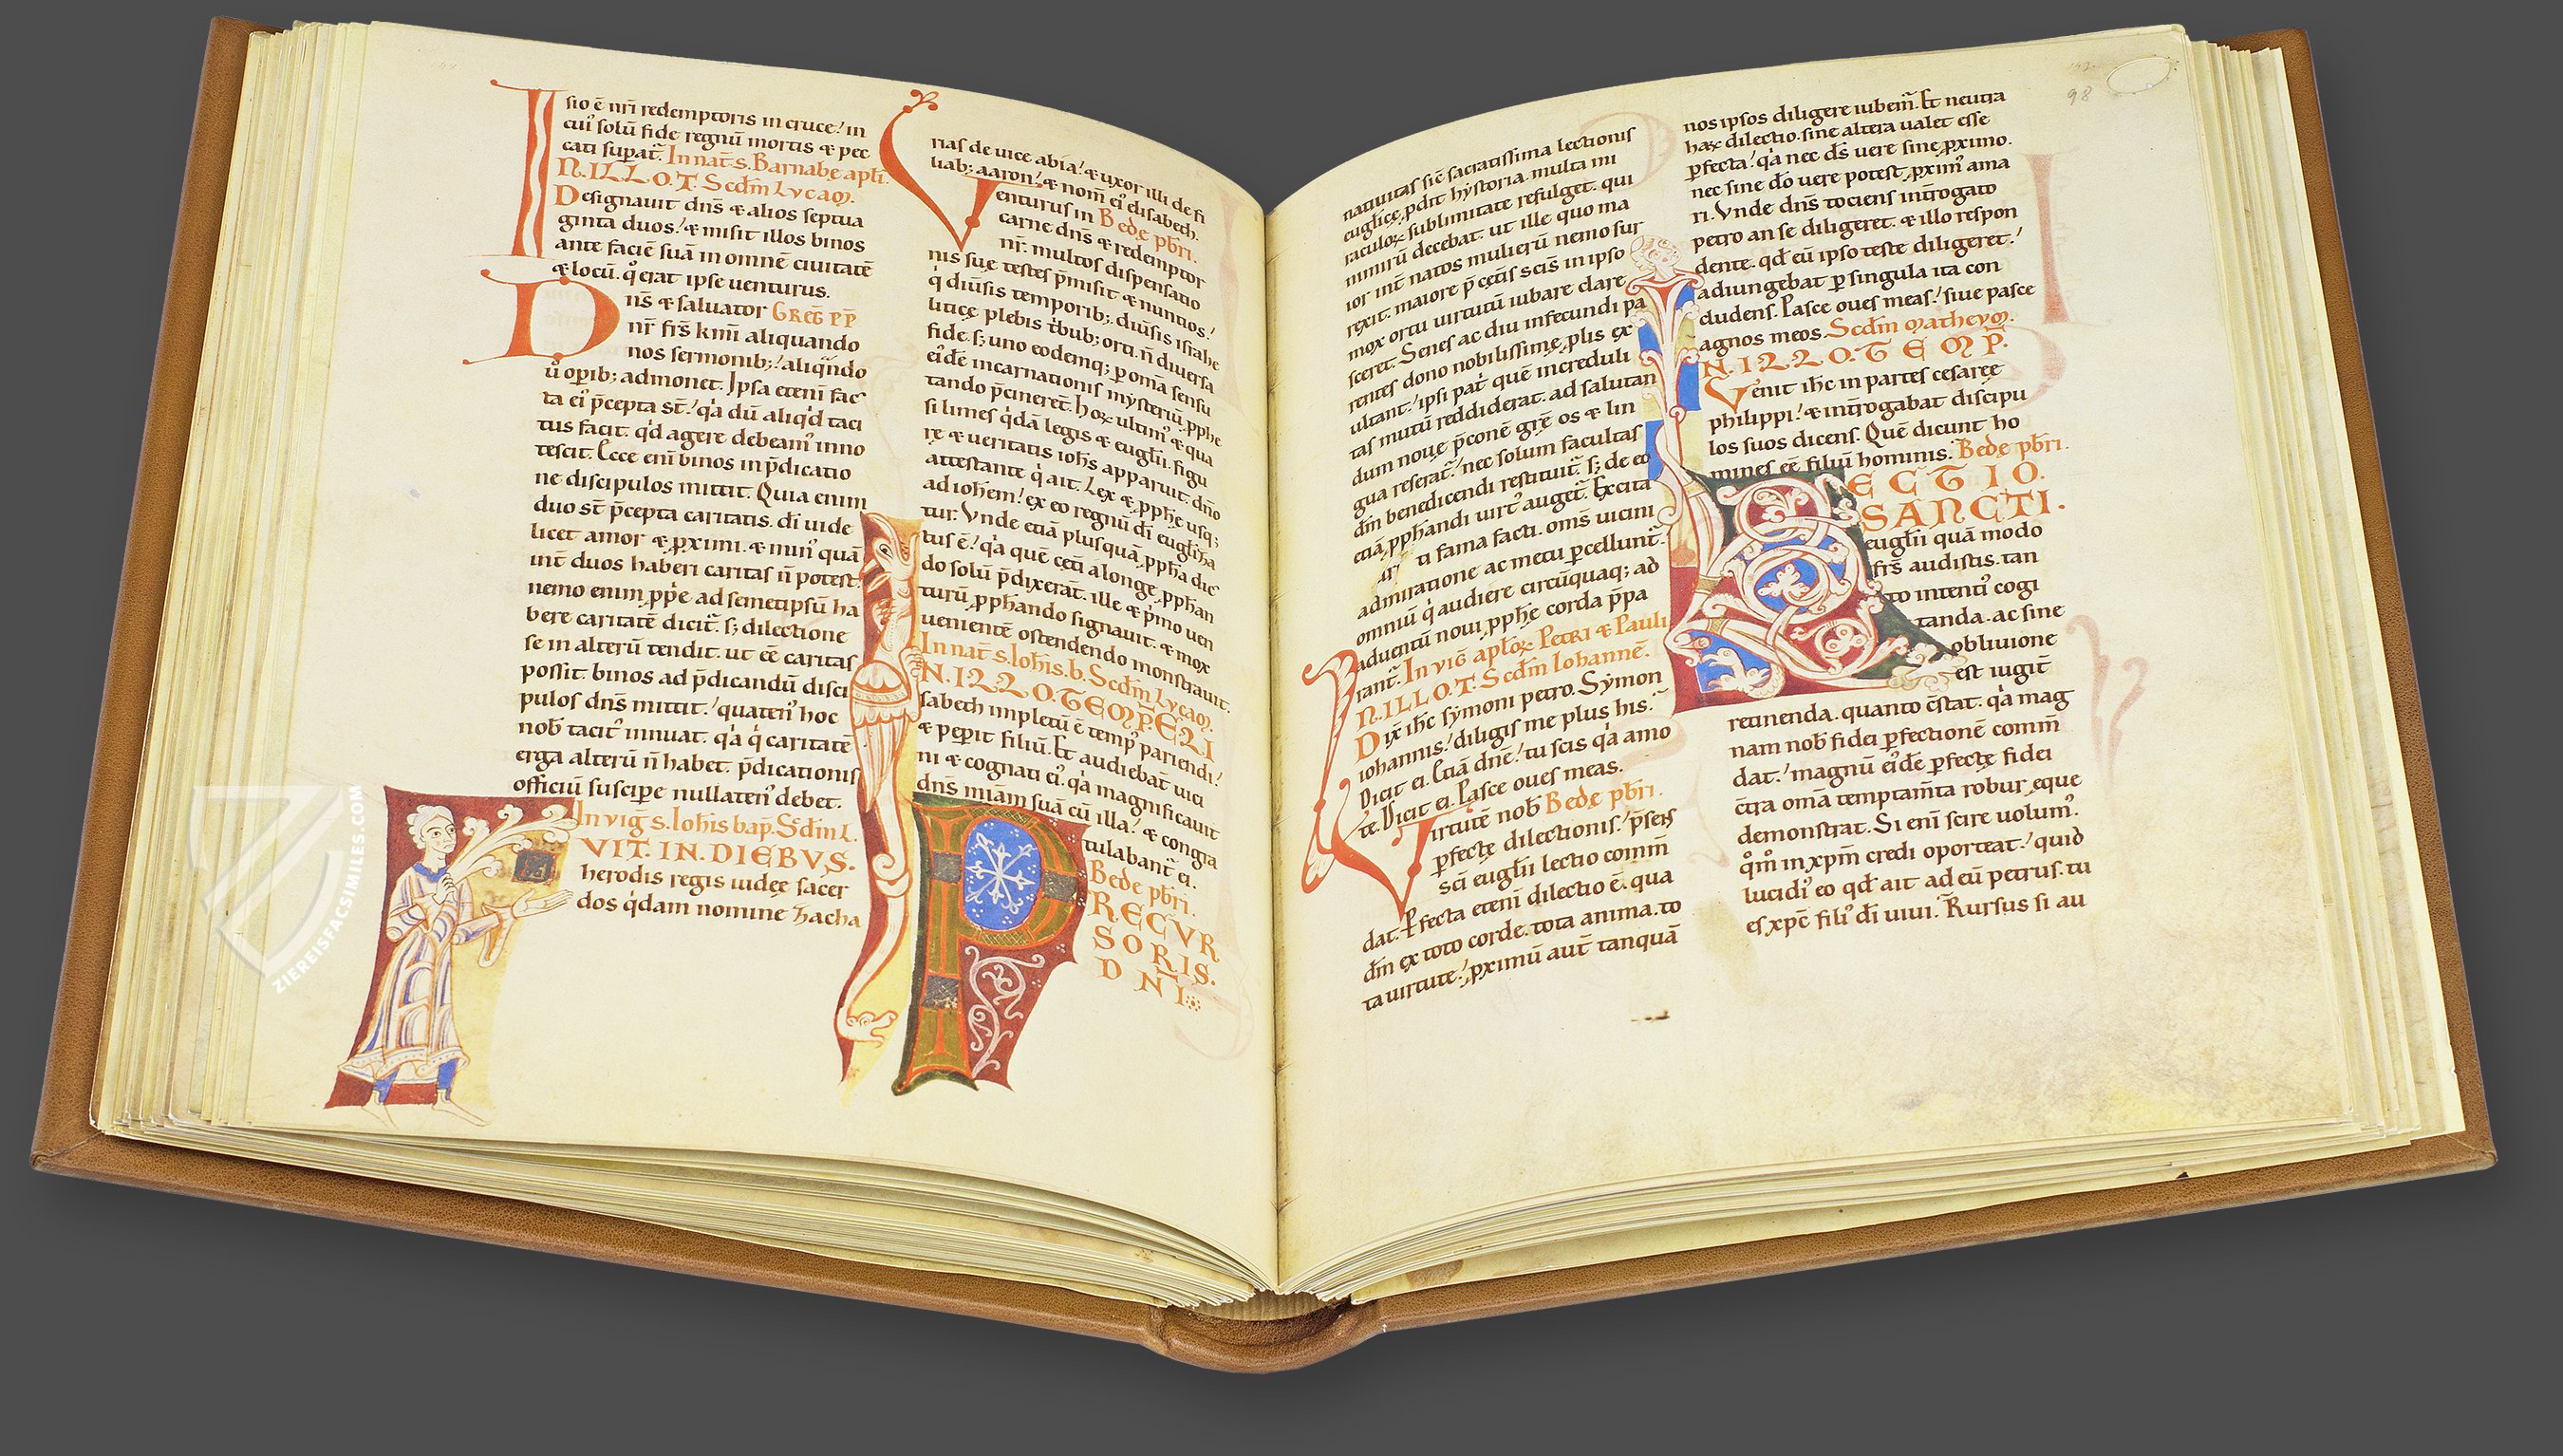 sio ē nr̄i redemptoris in cruce! in
cui' solū fide regnū mortis & pec
cati supat̄. In nat̄. s. Barnabę apl̄i.
N. ILLO. T. Scd̄m Lvcam.
Designauit dn̄s & alios septua
ginta duos! & misit illos binos
ante faciē suā in omnē ciuitatē
& locū. qͦ erat ipse uenturus.
Dn̄s & saluator GREḠ P̄P̄
nr̄ fr̄s km̄i aliquando
nos sermonib;! aliqn̄do
ū oꝑib; admonet. Ipsa eteni fac
ta ei' p̄cepta st̄! q'a dū aliq'd taci
tus facit. q'd agere debeam' inno
tescit. Ecce eni binos in p̄dicatio
ne discipulos mittit. Quia enim
duo st̄ p̄cepta caritatis. dī uide
licet amor & ꝓximi. & min' quā
int̄ duos haberi caritas n̄ potest.
nemo enim ꝓp̄e ad semetipsū ha
bere caritatē dicit̄. s; dilectione
se in alterū tendit. ut ēē caritas
possit. binos ad p̄dicandū disci
pulos dn̄s mittit! quaten' hoc
nob̄ tacit' innuat. q'a q' caritatē
erga alterū n̄ habet. p̄dicationis
officiū suscipe nullaten' debet.
In uiḡ s. Ioh̄is bap̄. Scd̄m L.
VIT. IN. DIEBVS.
herodis regis iudeę sacer
dos q'dam nomine Zacha
rias de uice abia! & uxor illi de fi
liab; aaron! & nom̄ ei' elisabeth.
Venturus in Bedę pb̄ri.
carne dn̄s & redemptor
nr̄. multos dispensatio
nis suę testes p̄misit & nuntios!
q' diūsis temporib;. diūsis israhe
liticę plebis t'bub; orti. n̄ diuersa
fide. s; uno eodemq; ꝑ om̄a sensu
ei'dē incarnationis mysteriū. ꝓphe
tando p̄cineret̄. Hoꝝ ultim' & qua
si limes q'da legis & eugl̄ii. figu
rę & ueritatis ioh̄s apparuit. dn̄o
attestante q' ait. Lex & ꝓphę usq;
ad ioh̄em! ex eo regnū dī eugl̄iza
tur. Vnde etiā plusquā ꝓph̄a dic
tus ē! q'a quē cet̄i a longe ꝓph̄an
do solū p̄dixerāt. ille & p'mo uen
turū ꝓph̄ando signauit. & mox
uenientē ostendendo monstrauit.
In nat̄ s. Ioh̄is. b. Scd̄m Lvcam.
N. ILLO. TEMP̄. ELI
sabeth impletū ē temp' pariendi!
& peꝑit filiū. Et audiebat̄ uici
ni & cognati ei'. q'a magnificauit
dn̄s miam̄ suā cū illa! & congra
tulabant̄ ei.
Bedę pb̄ri.
P RECVR
SORIS.
D NI
98
natiuitas sic̄ sacratissima lectionis
eugl̄icę ꝓdit hystoria. multa mi
raculoꝝ sublimitate refulget. qui
nimirū decebat. ut ille quo ma
ior int̄ natos mulierū nemo sur
rexit. maiore p̄ cet̄is sc̄is in ipso
mox ortu uirtutū iubare clare
sceret. Senes ac diu infecundi pa
rentes dono nobilissimę ꝓlis ex
ultant! ipsi pat̄ quē increduli
tas mutū reddiderat. ad salutan
dum nouę p̄conē gr̄ę os & lin
gua reserat̄! nec solum facultas
dm̄ benedicendi restituit̄. s; de eo
etiā ꝓph̄andi uirt' auget̄. Excita
ti fama facti. om̄s uicini
admiratione ac metu ꝑcellunt̄.
omniū q' audiere circūquaq; ad
aduentū noui ꝓphę corda p̄pa
rant̄. In uiḡ apl̄oꝝ Petri & Pauli
N. ILLO. T. Scd̄m Iohannē.
Dix ih̄c symoni petro. Symon
iohannis! diligis me plus his.
Dicit ei. Etiā dn̄e! tu scis q'a amo
te. Dicit ei. Pasce oues meas.
Virtutē nob̄ Bedę pb̄ri.
ꝑfectę dilectionis! p̄sens
sc̄i eugl̄ii lectio com̄m
dat. Ꝑfecta eteni dilectio ē. qua
dm̄ ex toto corde. tota anima. to
ta uirtute! ꝓximū aut̄ tanquā
nos ipsos diligere iubem'. Et neutra
haꝝ dilectio. sine altera ualet esse
ꝑfecta! q'a nec ds̄ uere sine ꝓximo.
nec sine dō uere potest ꝓxim' ama
ri. Vnde dn̄s tociens int̄rogato
petro an se diligeret. & illo respon
dente. qd̄ eū ipso teste diligeret!
adiungebat ꝑ singula ita con
cludens. Pasce oues meas! siue pasce
agnos meos. Scd̄m matheum.
N. ILLO. T E M P̄.
Venit ih̄c in partes cesareę
philippi! & int̄rogabat discipu
los suos dicens. Quē dicunt ho
mines ēē filiū hominis. Bedę pb̄ri.
L ECTIO.
SANCTI.
eugl̄ii quā modo
fr̄s audistis. tan
to intenti' cogi
tanda. ac sine
obliuione
est iugit̄
retinenda. quanto c̄stat. q'a mag
nam nob̄ fidei ꝑfectionē com̄m
dat! magnū ei'dē ꝑfectę fidei
c̄tra om̄a temptam̄ta robur ęque
demonstrat. Si eni scire uolum'.
qͦm̄ in xpm̄ credi oporteat! quid
lucidi' eo qd̄ ait ad eū petrus. tu
es xpc̄ fili' dī uiui. Rursus si au
ZIEREISFACSIMILES.COM